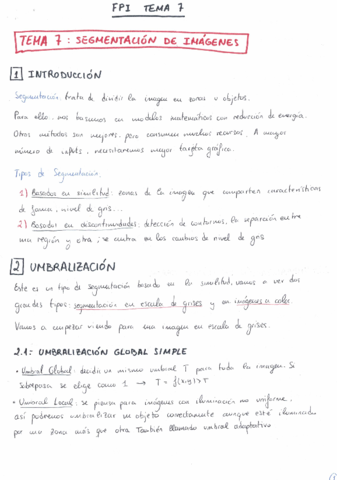 FPI TEMA 7
TEMA 7: SEGMENTACIÓN DE IMÁGENES
1 INTRODUCCIÓN
Segmentación: trata de dividir la imagen en zonas u objetos.
Para ello, nos basamos en modelos matemáticos con reducción de energía.
Otros métodos son mejores, pero consumen muchos recursos. A mayor
número de inputs, necesitaremos mayor tarjeta gráfica.
Tipos de Segmentación.
1) Basados en similitud: zonas de la imagen que comparten características
de forma, nivel de gris...
2) Basados en discontinuidades: detección de contornos, la separación entre
una región y otra, se centra en los cambios de nivel de gris
2 UMBRALIZACIÓN
Este es un tipo de segmentación basado en la similitud, vamos a ver dos
grandes tipos: segmentación en escala de grises y en imágenes a color
Vamos a empezar viendo para una imagen en escala de grises.
2.1: UMBRALIZACIÓN GLOBAL SIMPLE
• Umbral Global: decido un mismo umbral T para toda la imagen. Si
sobrepasa se elige como 1 → T = f(x,y) > T
• Umbral Local: se piensa para imágenes con iluminación no uniforme,
así podremos umbralizar un objeto correctamente aunque esté iluminado
por una zona más que otra También llamado umbral adaptativo